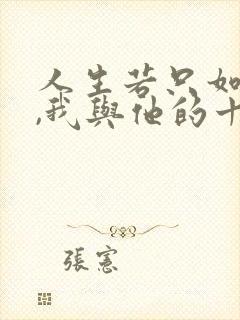 人生若只如
,我與他的十
張憲